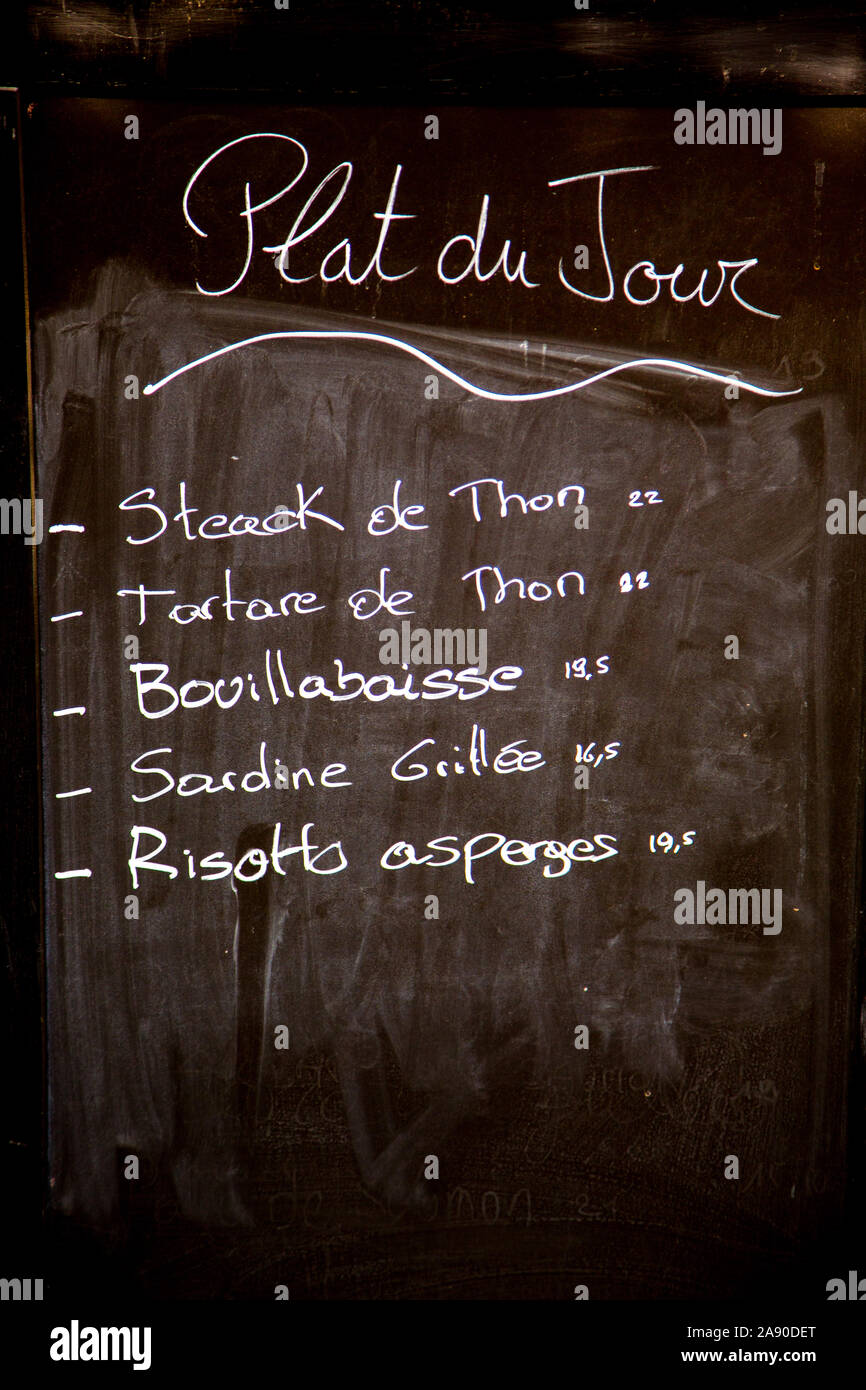 Plat du Jour
- Steack de Thon 22
- Tartare de Thon 22
- Bouillabaisse 19,5
- Sardine Grillée 16,5
- Risotto asperges 19,5
alamy
Image ID: 2A90DET
www.alamy.com